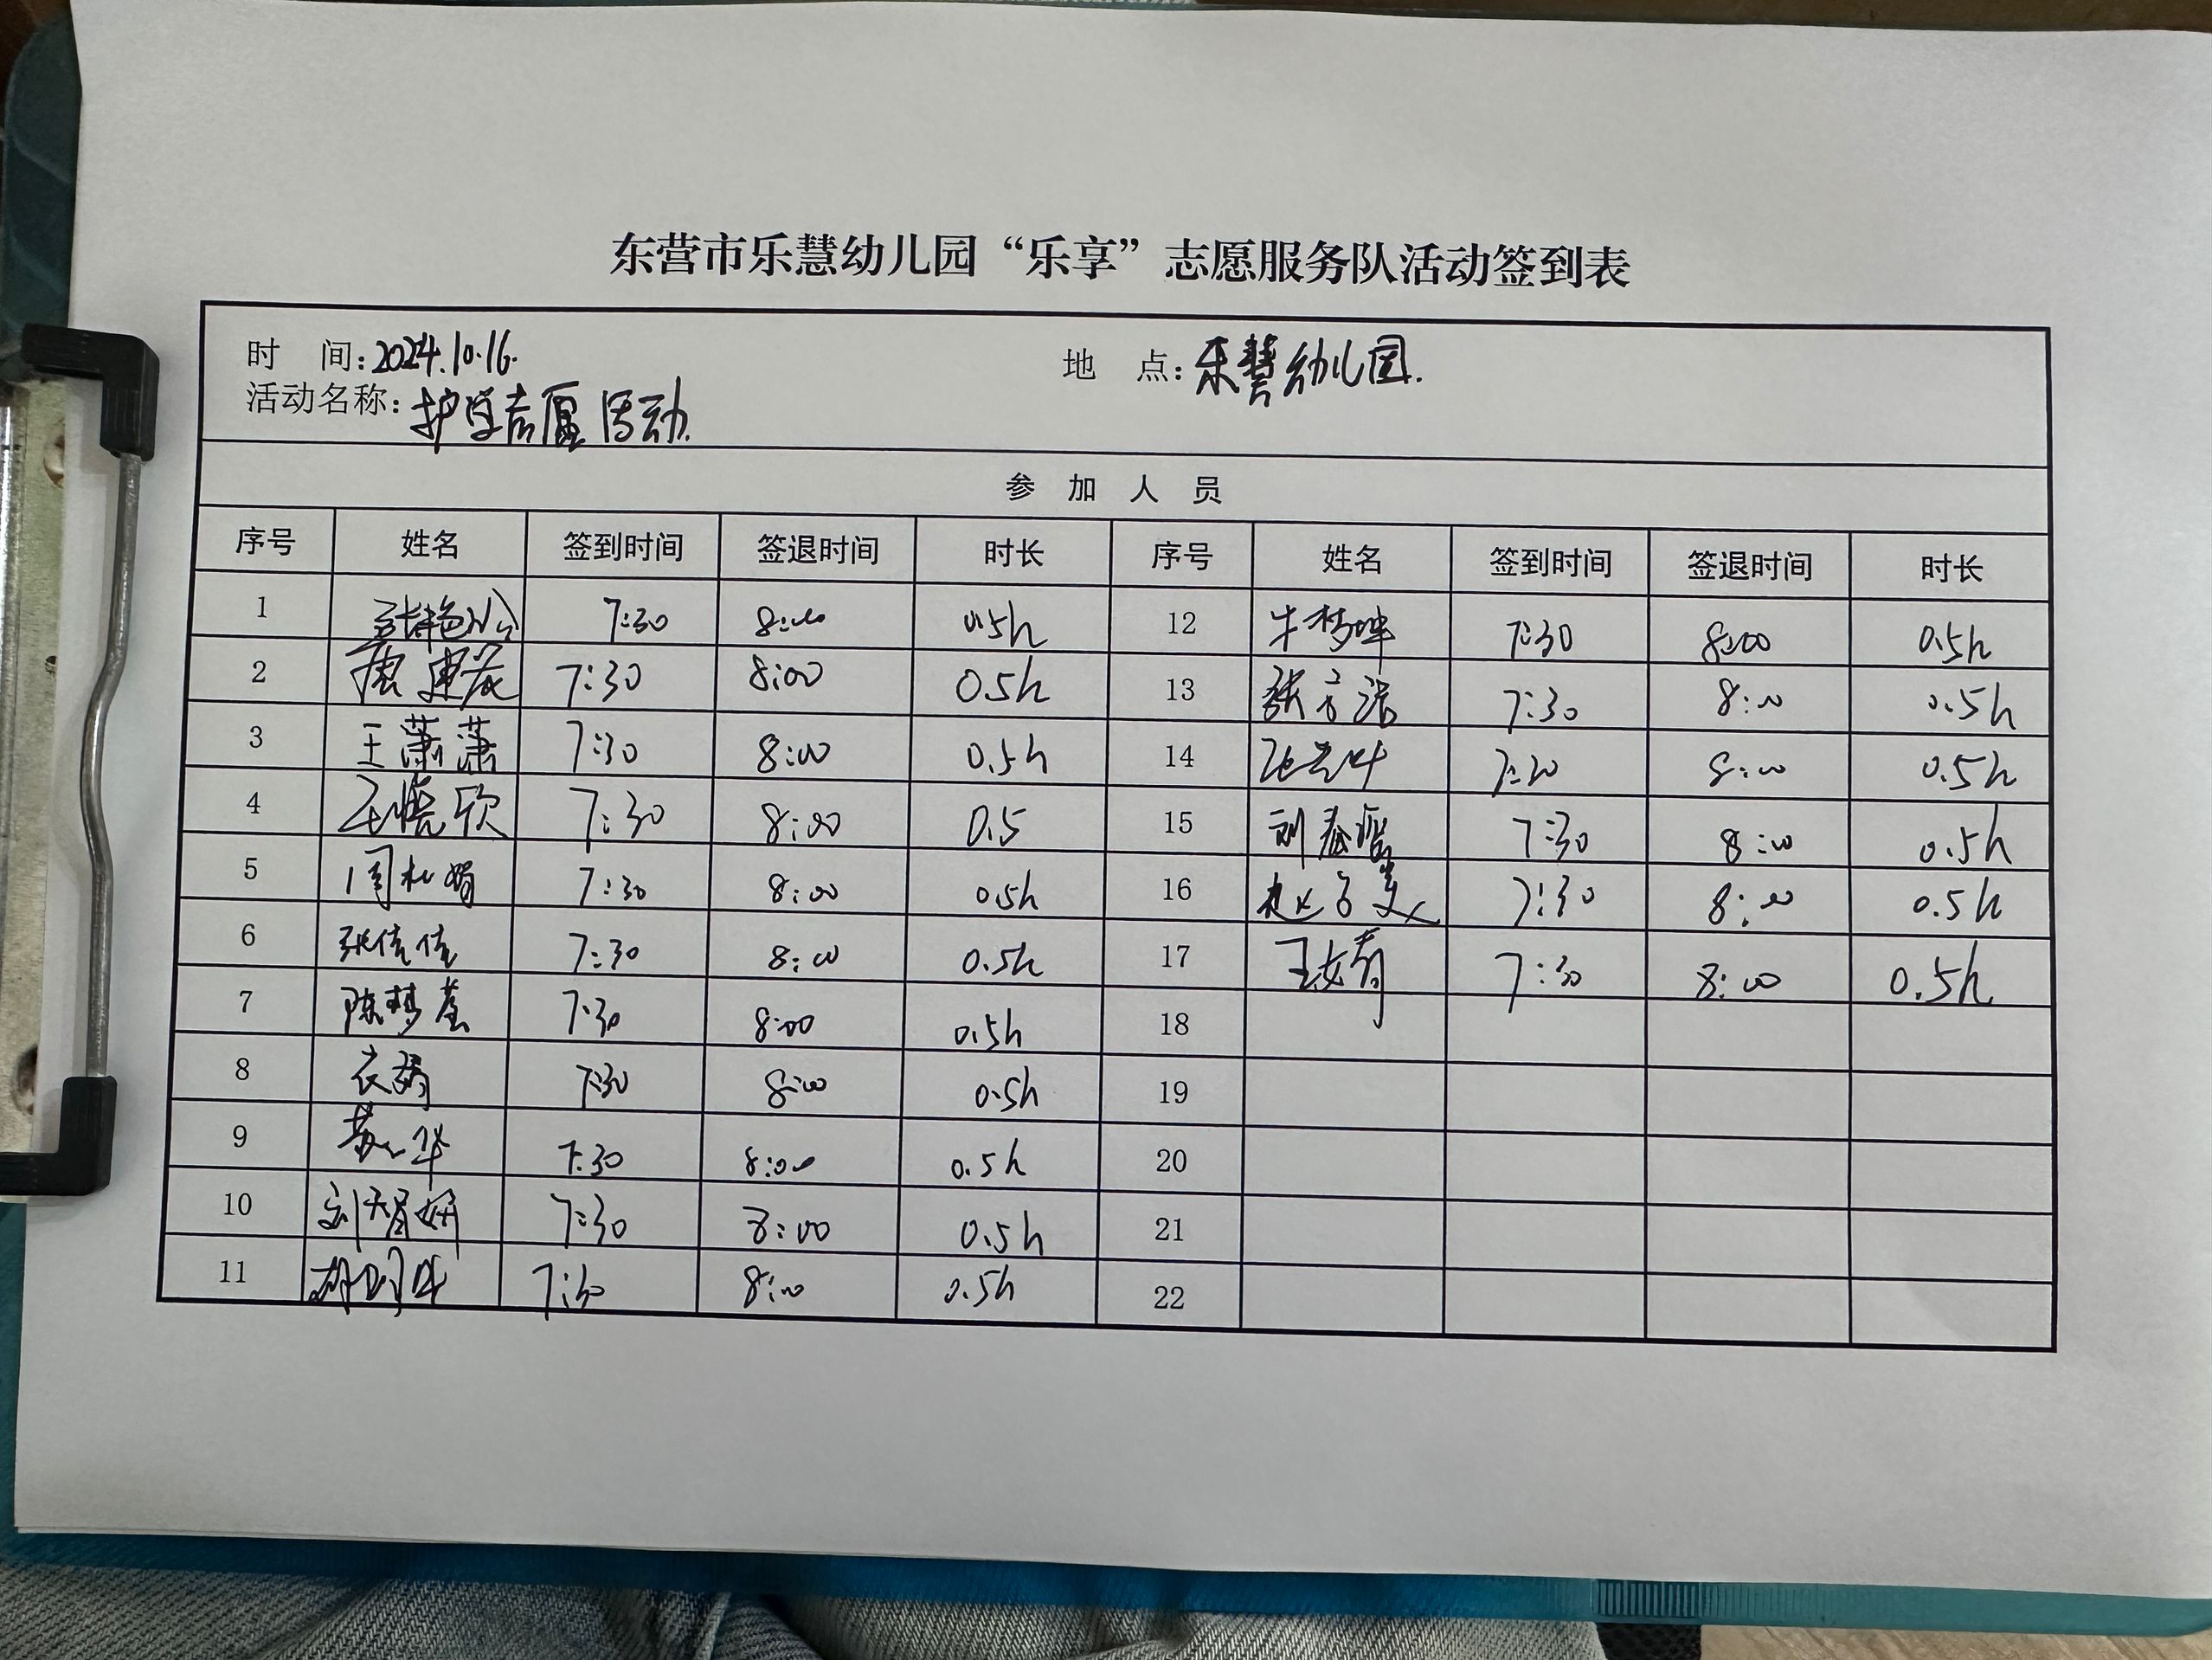 东营市乐慧幼儿园“乐享”志愿服务队活动签到表
时 间：2024.10.16. 地 点：乐慧幼儿园.
活动名称：护学志愿活动.
参 加 人 员
序号 姓名 签到时间 签退时间 时长 序号 姓名 签到时间 签退时间 时长
1 7:30 8:00 0.5h 12 牛梦坤 7:30 8:00 0.5h
2 7:30 8:00 0.5h 13 7:30 8:00 0.5h
3 王潇潇 7:30 8:00 0.5h 14 8:00 0.5h
4 7:30 8:00 0.5 15 7:30 8:00 0.5h
5 7:30 8:00 0.5h 16 7:30 8:00 0.5h
6 张倩倩 7:30 8:00 0.5h 17 7:30 8:00 0.5h
7 陈梦 7:30 8:00 0.5h 18
8 衣娟 7:30 8:00 0.5h 19
9 7:30 8:00 0.5h 20
10 刘 妍 7:30 8:00 0.5h 21
11 7:30 8:00 0.5h 22